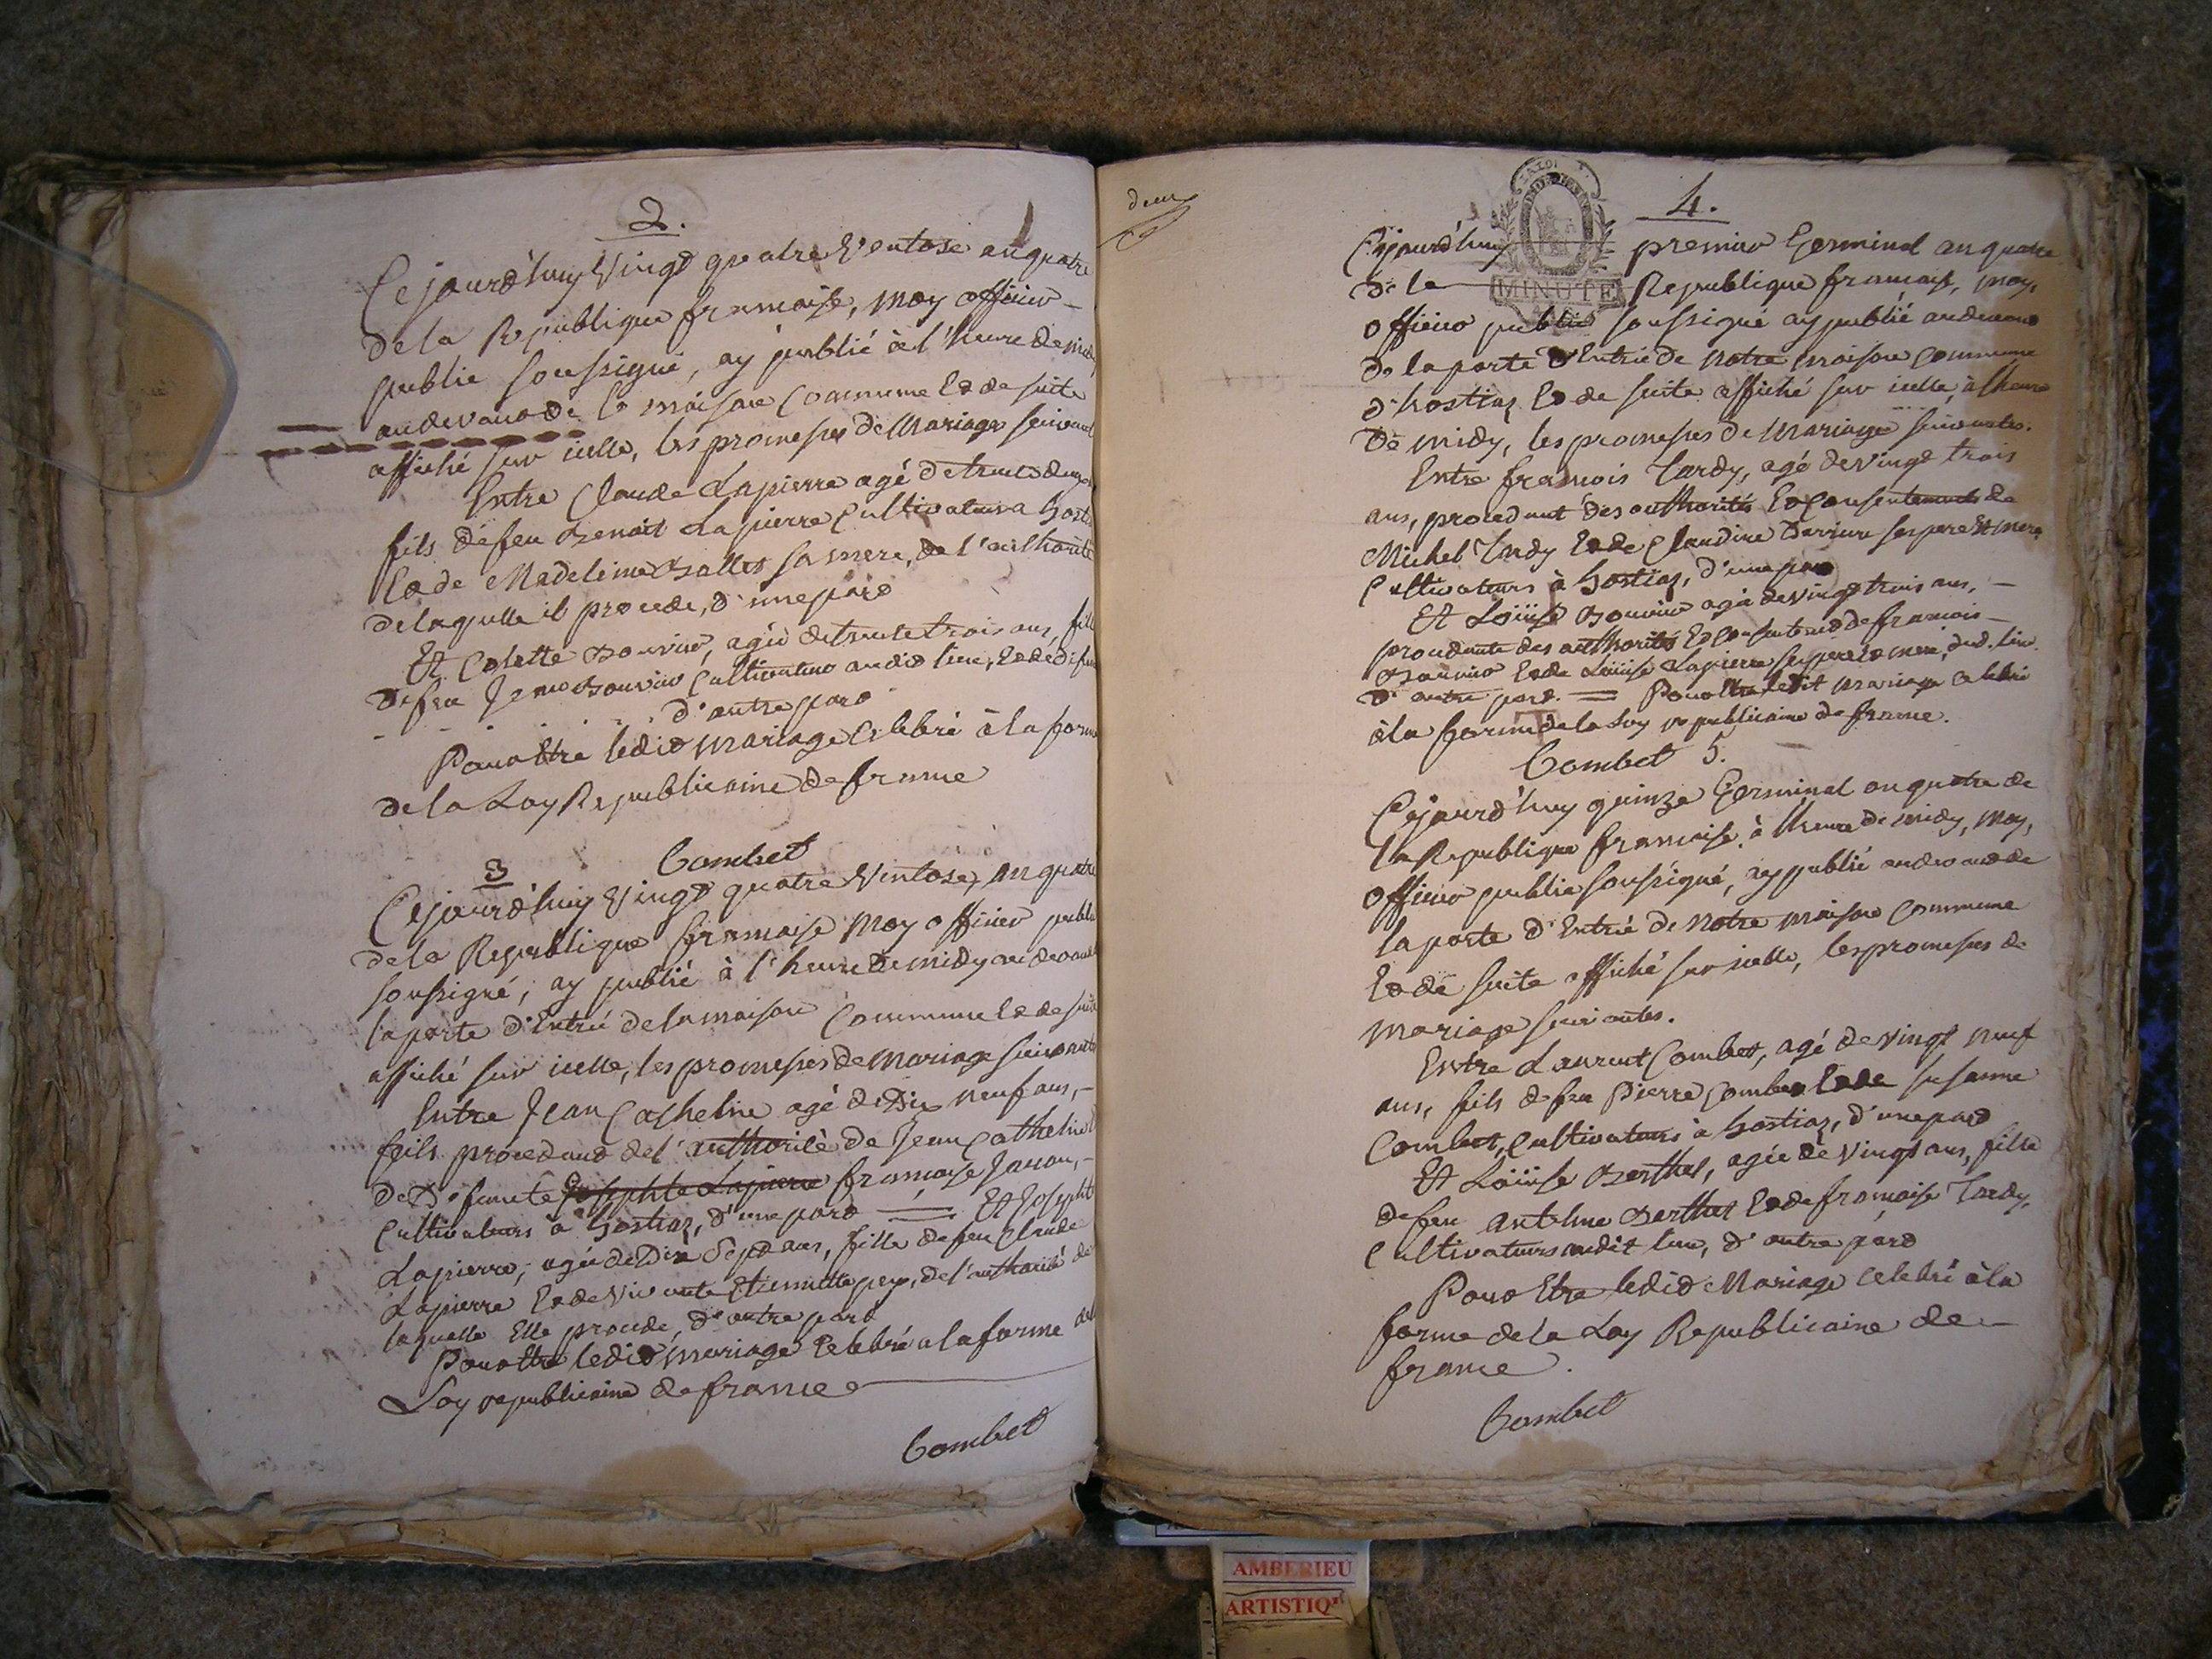 2.
Cejourd'huy Vingt quatre Ventose an quatre
de la Republique francaise, moy officier
public soussigné, ay publié à l'heure de midy
audevant de la maison Commune Et de suite
affiché sur icelle, les promesses de Mariage suivant
Entre Claude Lapierre agé de trente deux
fils de feu Benoit Lapierre Cultivateur a host
Et de Madeleine Ballet sa mere, de l'authorité
de laquelle il procede, d'une part
Et Colette Bouvier, agée de trente trois ans, fill
de feu Jean Bouvier Cultivateur audit lieu, Et de
d'autre part
Pour Etre ledit Mariage Celebré à la forme
de la Loy Republicaine de france
Combet
3
Cejourd'huy Vingt quatre Ventose, an quatre
de la Republique francaise Moy officier public
soussigné, ay publié à l'heure de midy au devant
la porte d'Entrée de la maison Commune Et de suite
affiché sur icelle, les promesses de Mariage suivant
Entre Jean Cathelin agé de Dix neuf ans,
fils procedant de l'authorité de Jean Cathelin
de Defuncte Josephte Lapierre francaise
Cultivateurs à hostiaz, d'une part = Et Josephte
Lapierre, agée de Dix Sept ans, fille de feu Claude
Lapierre Et de Vivante Etiennette, de l'authorité de
laquelle Elle procede, d'autre part
Pour Etre ledit Mariage Celebré a la forme de
Loy republicaine de france
Combet
deux
4.
Cejourd'huy premier Germinal an quatre
de la Republique francaise, moy,
MINUTE
officier public soussigné ay publié audevant
de la porte d'Entrée de Notre maison Commune
d'hostiaz Et de suite affiché sur icelle, à l'heure
de midy, les promesses de Mariage suivantes.
Entre francois Tardy, agé de vingt trois
ans, procedant des authorités Et Consentements de
Michel Tardy Et de Claudine ses pere Et mere
Cultivateurs à hostiaz, d'une part
Et Loüise Bouvier agée de vingt trois ans,
procedante des authorités Et Consentement de francois
Bouvier Et de Loüise Lapierre ses pere Et mere, dud. lieu
d'autre part. = Pour Etre ledit Mariage Celebré
à la forme de la Loy republicaine de france.
Combet 5.
Cejourd'huy quinze Germinal an quatre de
la Republique francaise, à l'heure de midy, moy,
officier public soussigné, ay publié audevant de
la porte d'Entrée de Notre maison Commune
Et de suite affiché sur icelle, les promesses de
mariage suivantes.
Entre Laurent Combet, agé de vingt neuf
ans, fils de feu Pierre Combet Et de susanne
Combet, Cultivateurs à hostiaz, d'une part
Et Loüise Berthet, agée de vingt ans, fille
de feu antelme Berthet Et de francoise Tardy,
Cultivateurs audit lieu, d'autre part
Pour Etre ledit Mariage Celebré à la
forme de la Loy Republicaine de
france.
Combet
AMBERIEU
ARTISTIQ